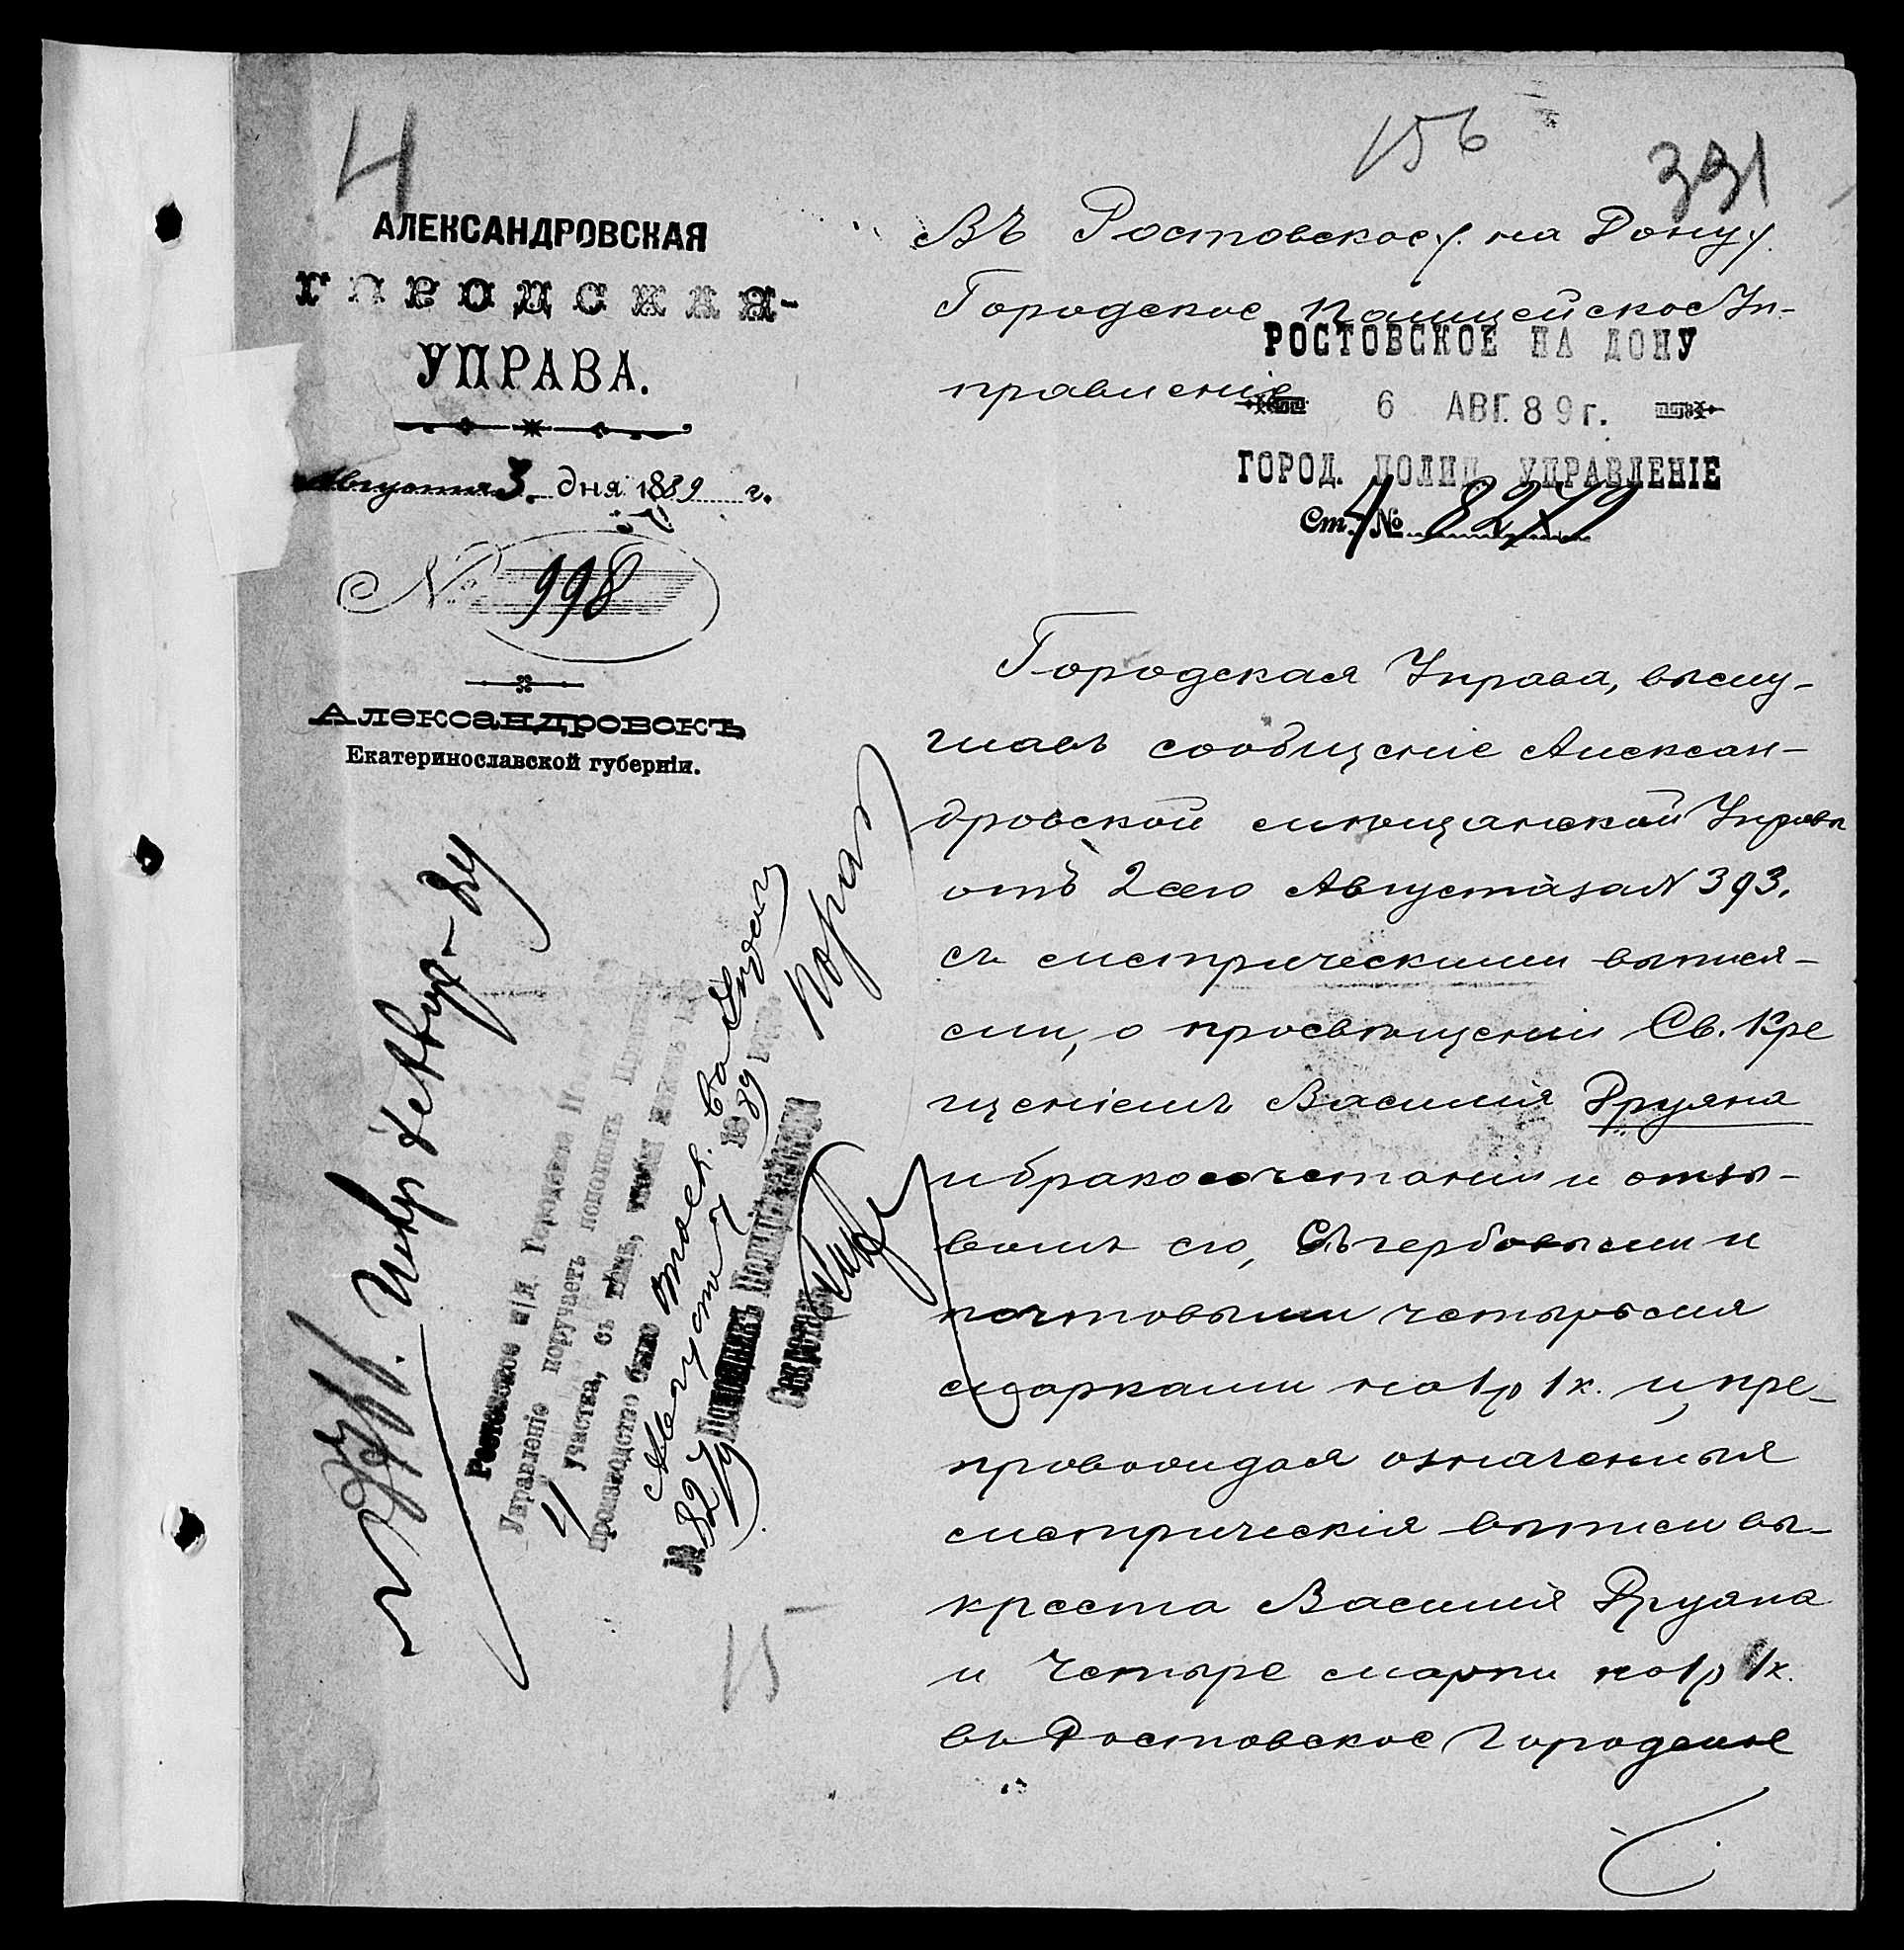 4
156
391
АЛЕКСАНДРОВСКАЯ
ГОРОДСКАЯ
УПРАВА.
Августа 3 дня 1889 г.
№ 998
Александровскъ
Екатеринославской губерніи.
Въ Ростовское /. на Дону /.
Городское Полицейское Уп-
правленіе
РОСТОВСКОЕ НА ДОНУ
6 АВГ. 89 г.
ГОРОД. ПОЛИЦ. УПРАВЛЕНІЕ
Ст. 4 № 8279
Городская Управа, выслу-
шавъ сообщеніе Алексан-
дровской мѣщанской Управы
отъ 2 сего Августа за N 393.
съ метрическими выпися-
ми, о просвѣщеніи Св. Кре
щеніемъ Василія Друяна
и бракосочетании и отзы-
вомъ его, съ гербовыми и
почтовыми четырьмя
марками на 1 р 1 к. и, пре-
провождая означенныя
метрическія выписи вы-
креста Василія Друяна
и четыре марки на 1 р 1 к.
въ Ростовское Городское
Ростовское н/Д Городское
Управленіе поручаетъ исполнить
4 участка, съ тѣмъ, чтобы
производство было
Августа 1889 года
№ 8279
Помощникъ Полиціймейстера
Секретарь
15